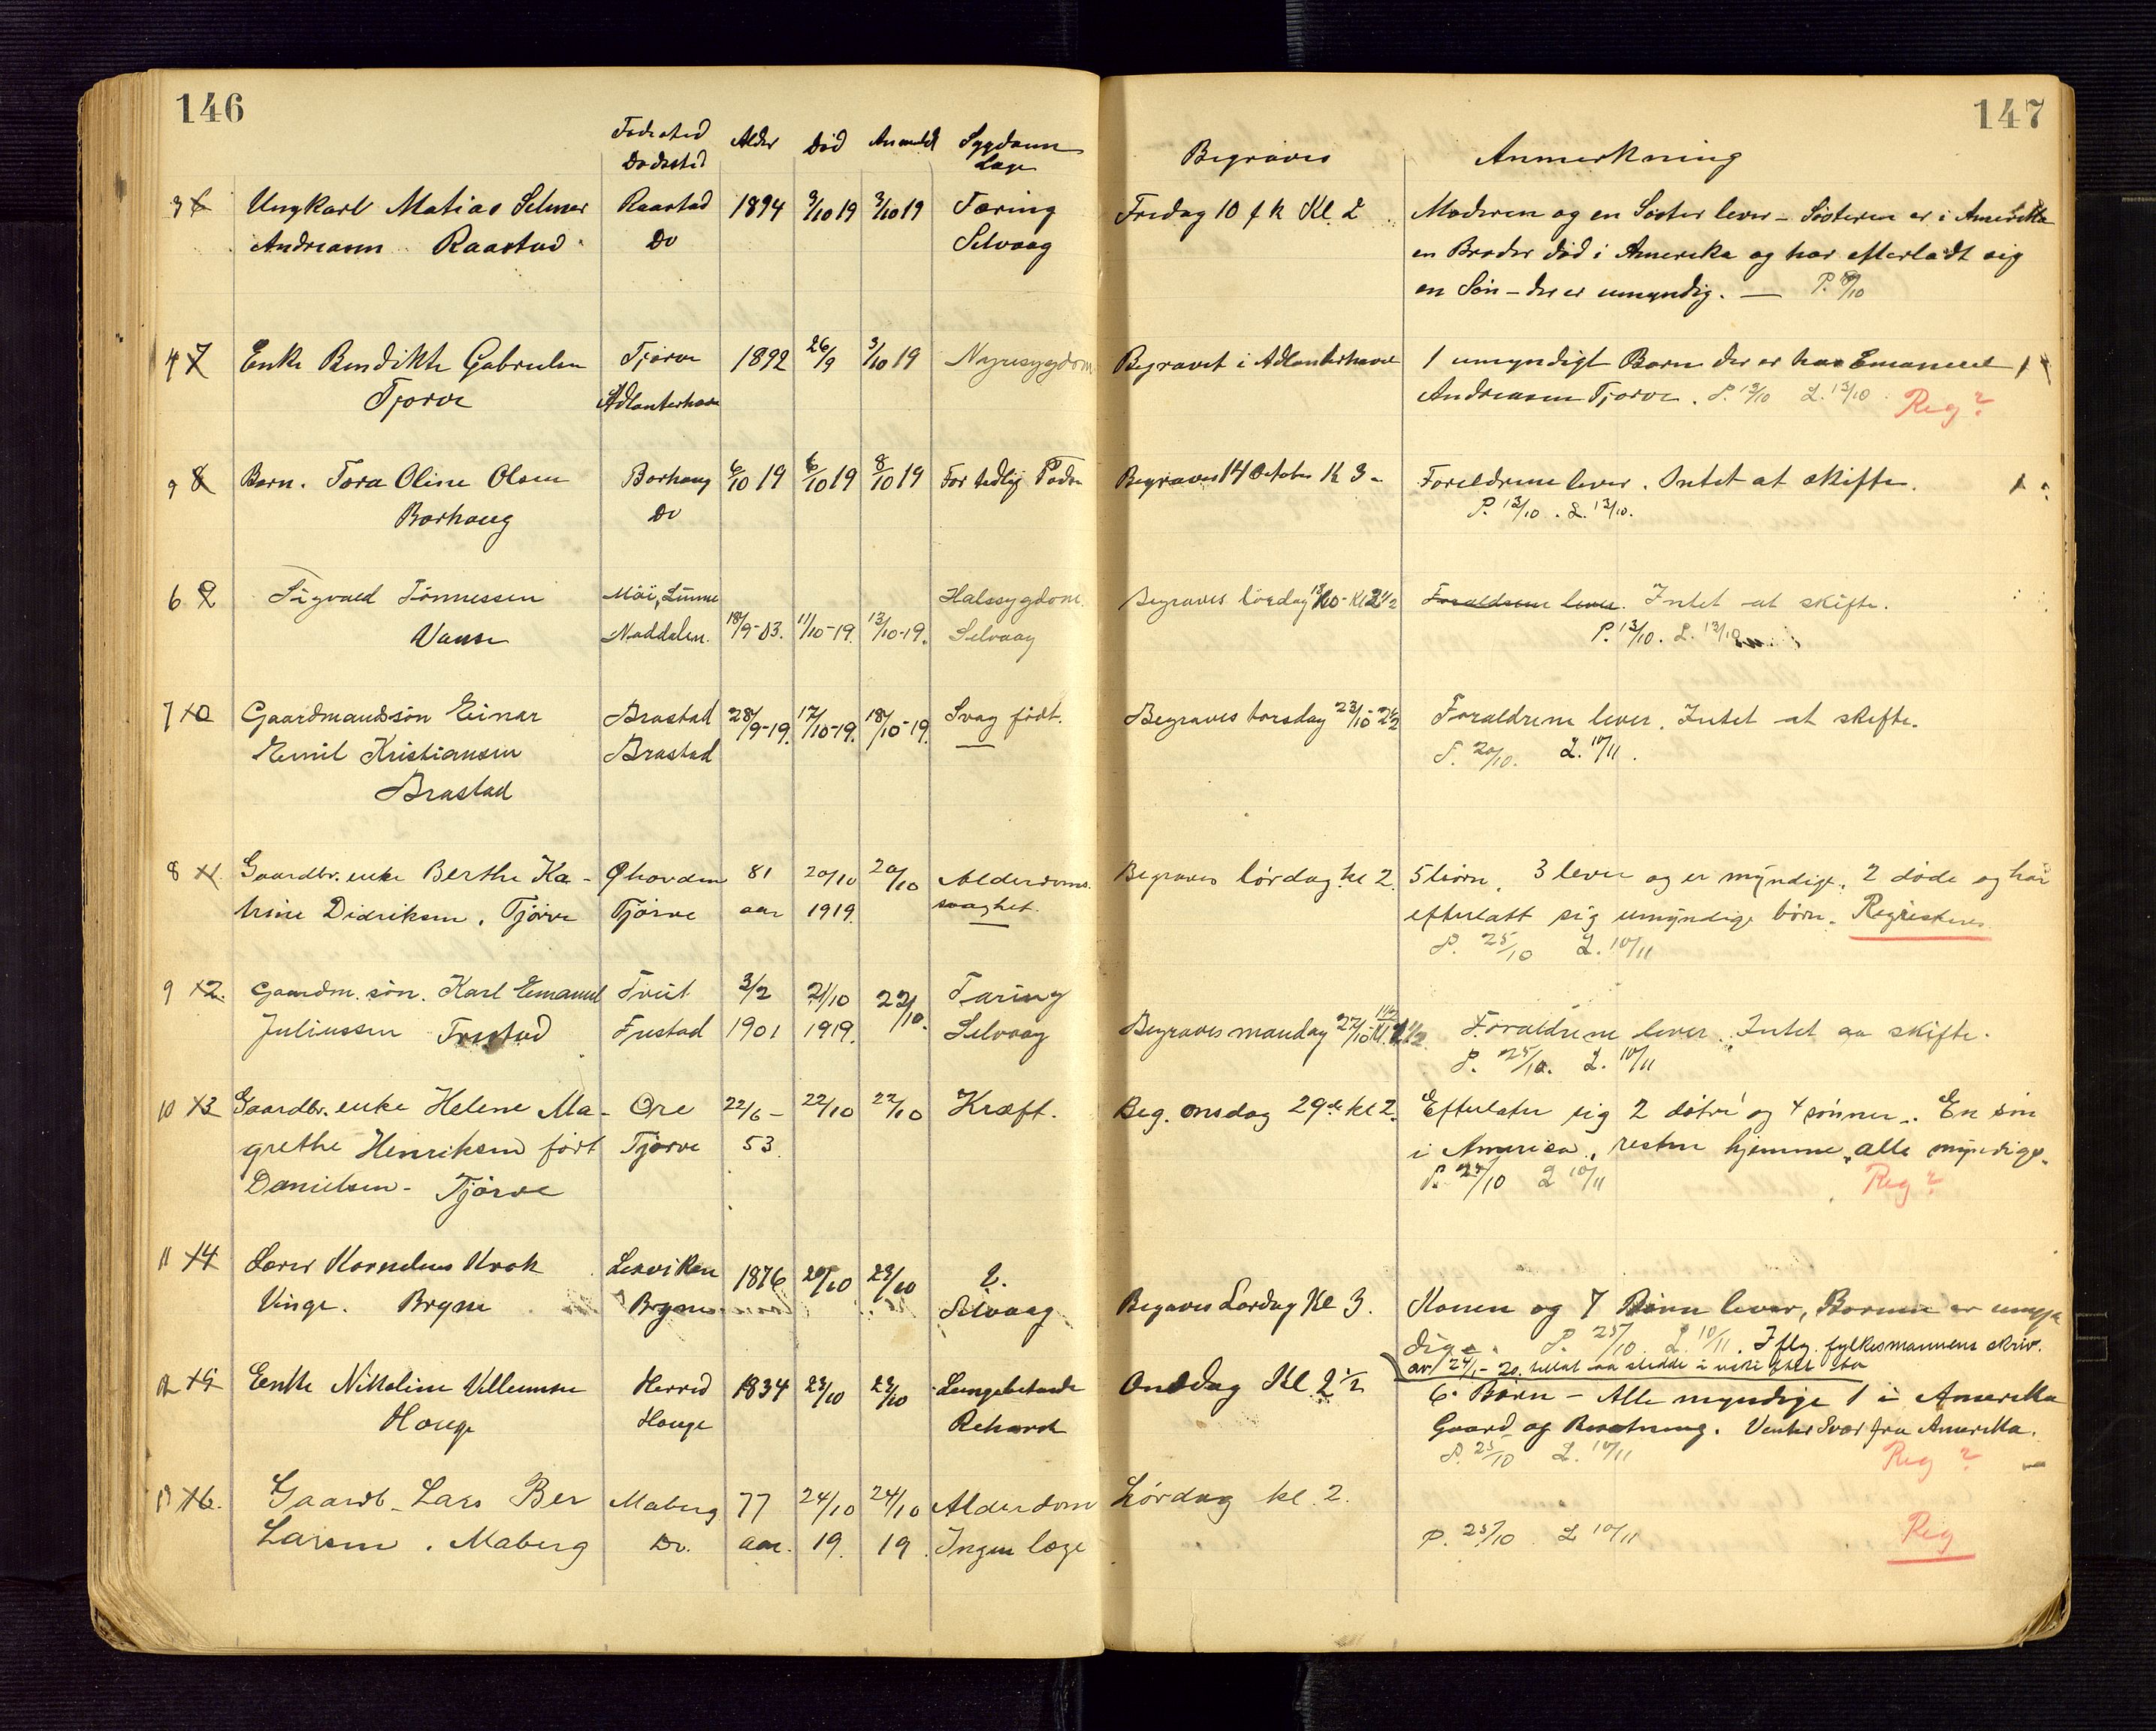 146
147
Fødested Alder Død Anmeldt Sygdom
Dødssted Læge
Begraves Anmerkning
3 6 Ungkarl Matias Selmer Raastad 1894 3/10 19 3/10 19 Tæring Fredag 10 f k Kl 2 Moderen og en Søster lever - Søsteren er i Amerikka
Andreasen Raastad Do Selvaag en Broder død i Amerika og har efterladt sig
en Søn - der er umyndig. — P. /10
4 7 Enke Bendikte Gabrielsen Tjørve 1892 26/9 3/10 19 Nyresygdom Begravet i Adlanterhavet 1 umyndigt Barn der er hos Emanuel
Tjørve Adlanterhave Andreasen Tjørve. P. 13/10 L. 13/10. Reg?
9 8 Barn. Tora Oline Olsen Borhaug 6/10 19 6/10 19 8/10 19 For tidlig Fødsel Begraves 14 October Kl 3 - Foreldrene lever. Intet at skifte.
Borhaug Do P. 13/10. L. 13/10.
6 9 Sigvald Tønnessen Møi, Lunne Halssygdom. Begraves lørdag 18/10 - Kl 2 1/2 Forældrene lever. Intet at skifte.
Vanse Noddalen. 18/9-03. 11/10-19. 13/10-19. Selvaag P. 13/10. L. 13/10
7 10 Gaardmandssøn Einar Brastad 28/9-19. 17/10-19. 18/10-19. Svag født. Begraves torsdag 23/10 - Forældrene lever. Intet at skifte.
Emil Kristiansen Brastad P. 20/10. L. 10/11.
Brastad
8 11 Gaardbr. enke Berthe Ka- Qhovden 81 20/10 20/10 Alderdoms. Begraves lørdag kl 2. 5 børn. 3 lever og er myndige. 2 døde og har
trine Didriksen. Tjørve Tjørve aar 1919. svaghet. efterlatt sig umyndige børn. Registreres
P. 25/10 L. 10/11
9 12. Gaardm. søn. Karl Emanuel Tveit 3/2 21/10 22/10. Tæring
Juliussen Frestad Frestad 1901 1919. Selvaag Begraves mandag 27/10 - Kl. Forældrene lever. Intet aa skifte.
P. 25/10. L. 10/11
10 13 Gaardbr. enke Helene Ma- Ore 22/6 - 22/10 22/10 Kræft. Beg. onsdag 29de kl 2. Efterlater sig 2 døtre og 4 sønner. En søn
grethe Henriksen født Tjørve 53. i America, resten hjemme, alle myndige.
Danielsen - Tjørve P. /10 L 10/11 Reg?
11 14 Lærer Kornelius Krok Lervikan 1876 20/10 23/10 2.
Vinge. Bryne Bryne Selvaag Begaves Lørdag Kl 3. Konen og 7 Børn lever, Bornene er umyn
dige. P. 25/10 L. 10/11. Iflg. fylkesmannens skriv.
av 24/1 - 20. tillat aa sidde i uskiftet bo
12 15 Enke Nikoline Villumsen Herred 1834 23/10 23/10 Lungebetende Onsdag Kl 2 1/2 6 Børn - Alle myndige 1 i Amerikka
Houge Houge Rehardt Gaard og Besetning. Venter svar fra Amerikka.
P. 25/10 L. 10/11 Reg?
13 16. Gaardb. Lars Ber Maberg 77 24/10 24/10 Alderdom Lørdag kl. 2.
Larsen. Maberg Do. aar. 19. 19 Ingen læge P. 25/10 L 10/11 Reg